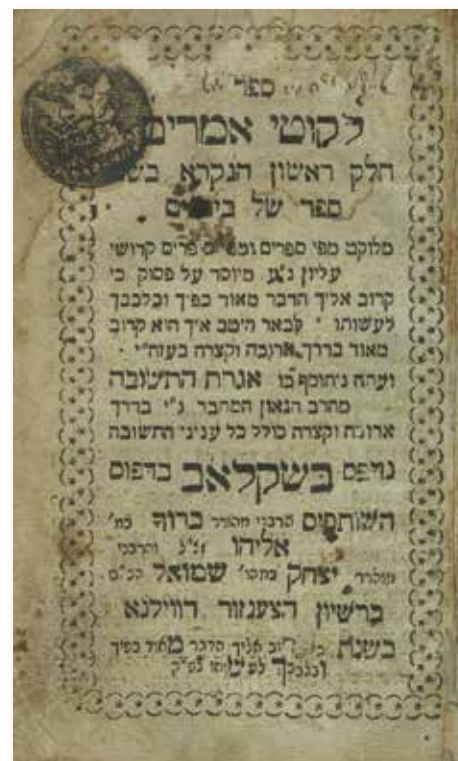 ספר
לקוטי אמרים
חלק ראשון הנקרא בשם
ספר של בינונים
מלוקט מפי ספרים ומפי סופרים קדושי
עליון נ"ע מיוסד על פסוק כי
קרוב אליך הדבר מאוד בפיך ובלבבך
לעשותו לבאר היטב איך הוא קרוב
מאוד בדרך ארוכה וקצרה בעזה"י
ועתה ניתוסף בו אגרת התשובה
מהרב הגאון המחבר נ"י בדרך
ארוכה וקצרה כולל כל עניני התשובה
נדפס בשקלאב בדפוס
השותפים הרבני מהורר ברוך במ'
אליהו ז"ל והרבני
מוהרר יצחק שמואל
ברשיון הצענזור דווילנא
בשנת אליך הדבר מאוד בפיך
ובלבבך לפ"ק